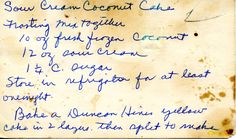 Sour Cream Coconut Cake
Frosting Mix together
10 oz fresh frozen Coconut
12 oz sour cream
1 1/2 C. sugar
Store in refrigator for at least
overnight
Bake a Duncan Hines yellow
cake in 2 layers. Then split to make